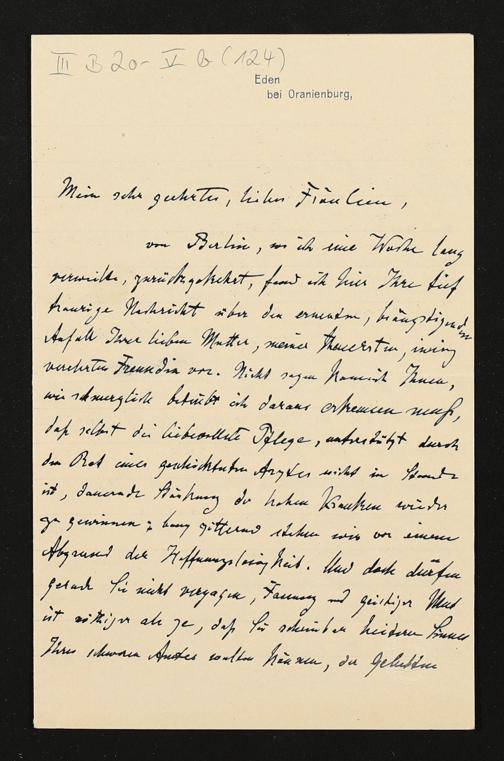 III B 20 - V b (124)
Eden
bei Oranienburg,
Mein sehr geehrtes, liebes Fräulein,
von Berlin, wo ich eine Woche lang
verweilte, zurückgekehrt, fand ich hier Ihre tief
traurige Nachricht über den erneuten, beängstigenden
Anfall Ihrer lieben Mutter, meiner theuersten, innig
verehrten Freundin vor. Nicht sagen kann ich Ihnen,
wie schmerzlich betrübt ich daraus erkennen muß,
daß selbst die liebevollste Pflege, unterstützt durch
den Rat eines geschicktesten Arztes nicht im Stande
ist, dauernde Stärkung der hohen Kranken wieder
zu gewinnen; bang zitternd stehen wir vor einem
Abgrund der Hoffnungslosigkeit. Und doch dürfen
gerade Sie nicht verzagen, Fassung und geistiger Mut
ist nöthiger als je, daß Sie scheinbar heiteren Sinnes
Ihres schweren Amtes walten können, der Geliebten